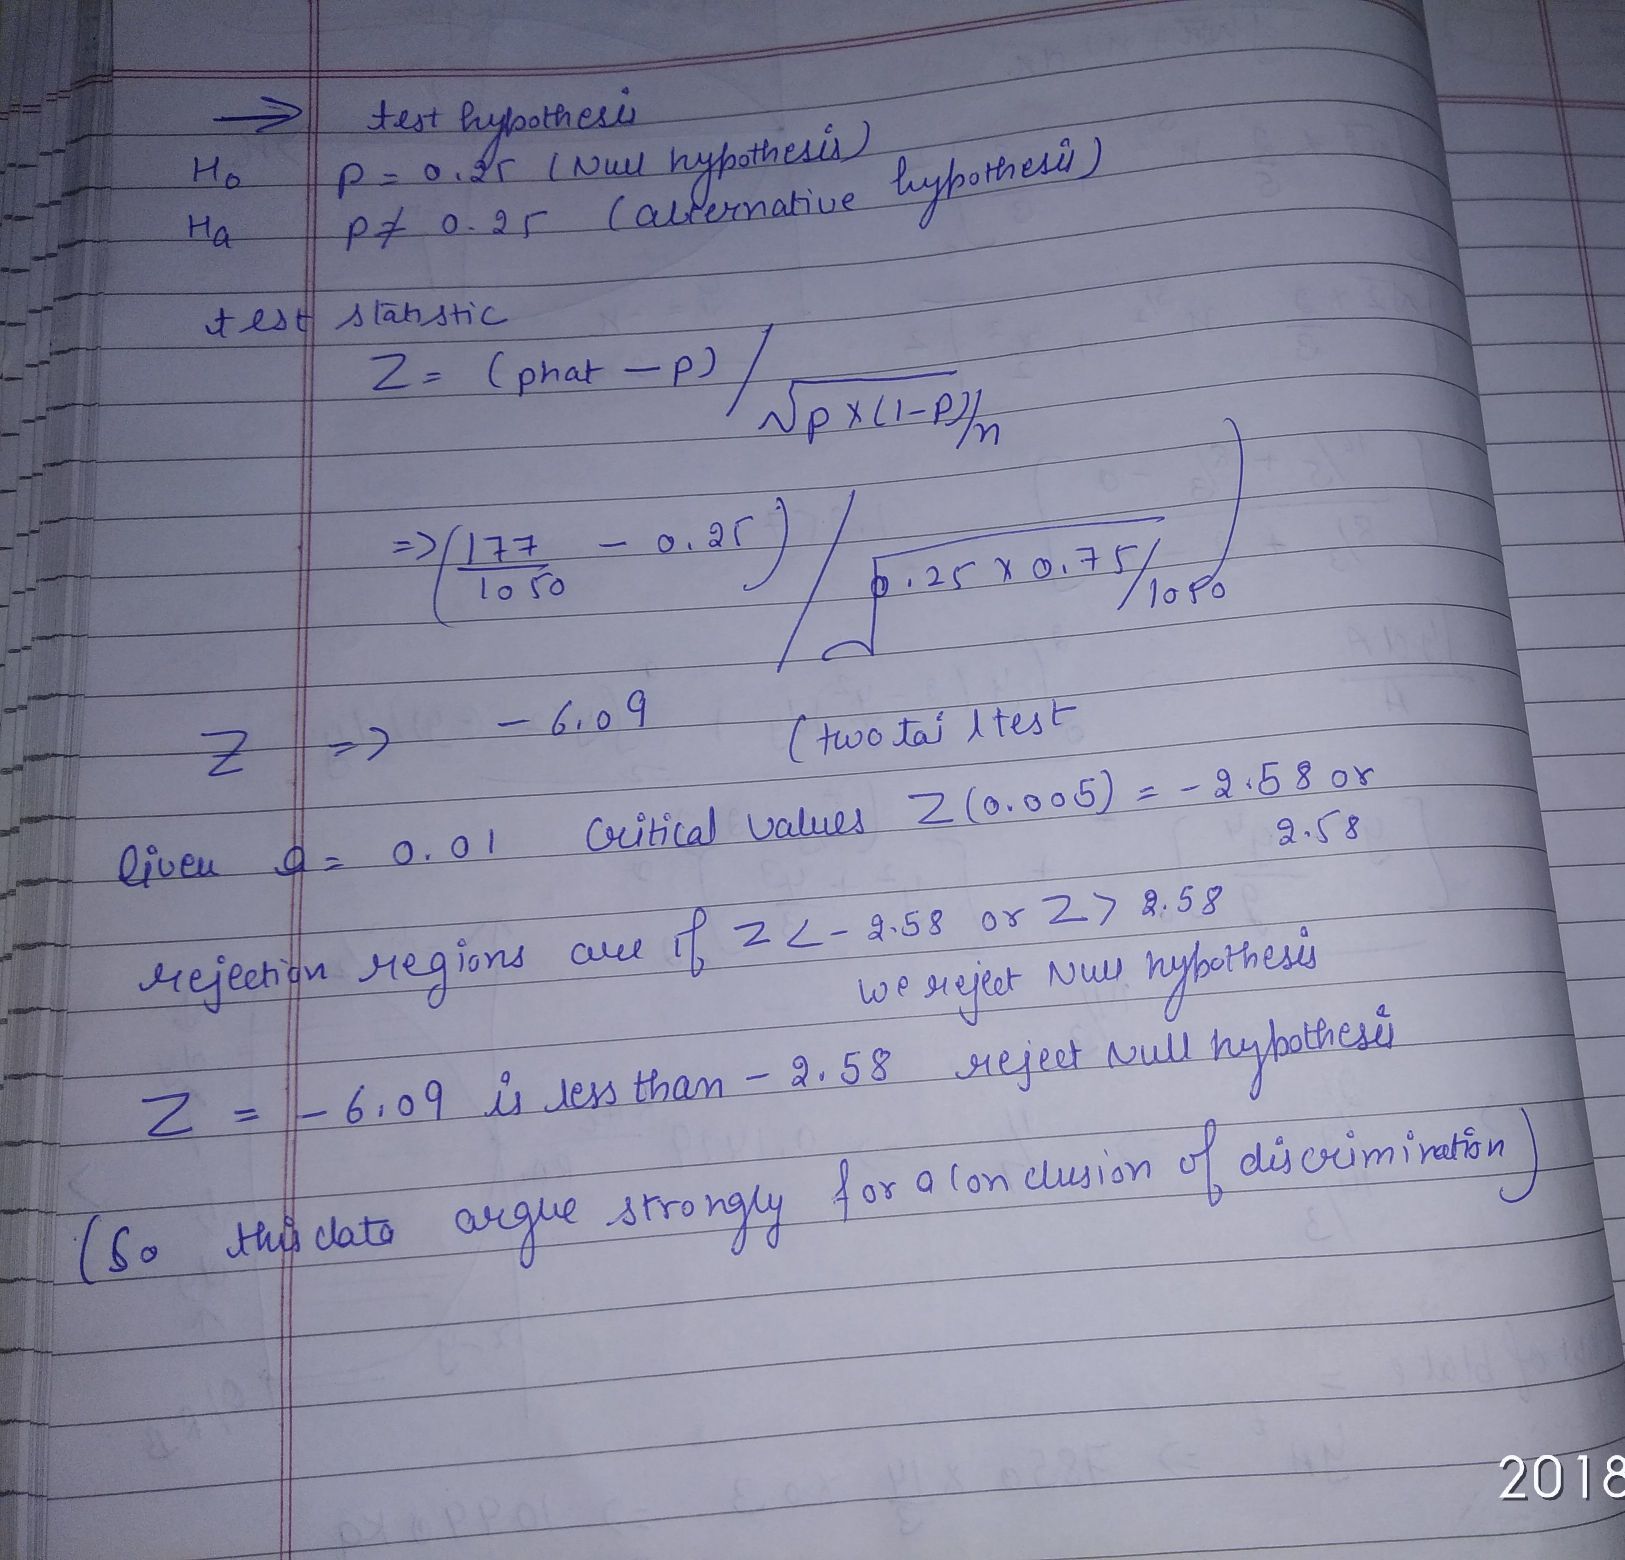 → test hypothesis
H₀ p = 0.25 (Null hypothesis)
Ha p ≠ 0.25 (alternative hypothesis)
test statistic
Z = (phat – p) / √p×(1-P)/n
=> (177/1050 – 0.25) / √0.25 x 0.75/1050)
Z => – 6.09 (two tail test
Given = 0.01 Critical values Z(0.005) = - 2.58 or
2.58
rejection regions are if Z < - 2.58 or Z > 2.58
we reject Null hypothesis
Z = - 6.09 is less than - 2.58 reject Null hypothesis
(So this data argue strongly for a conclusion of discrimination)
2018